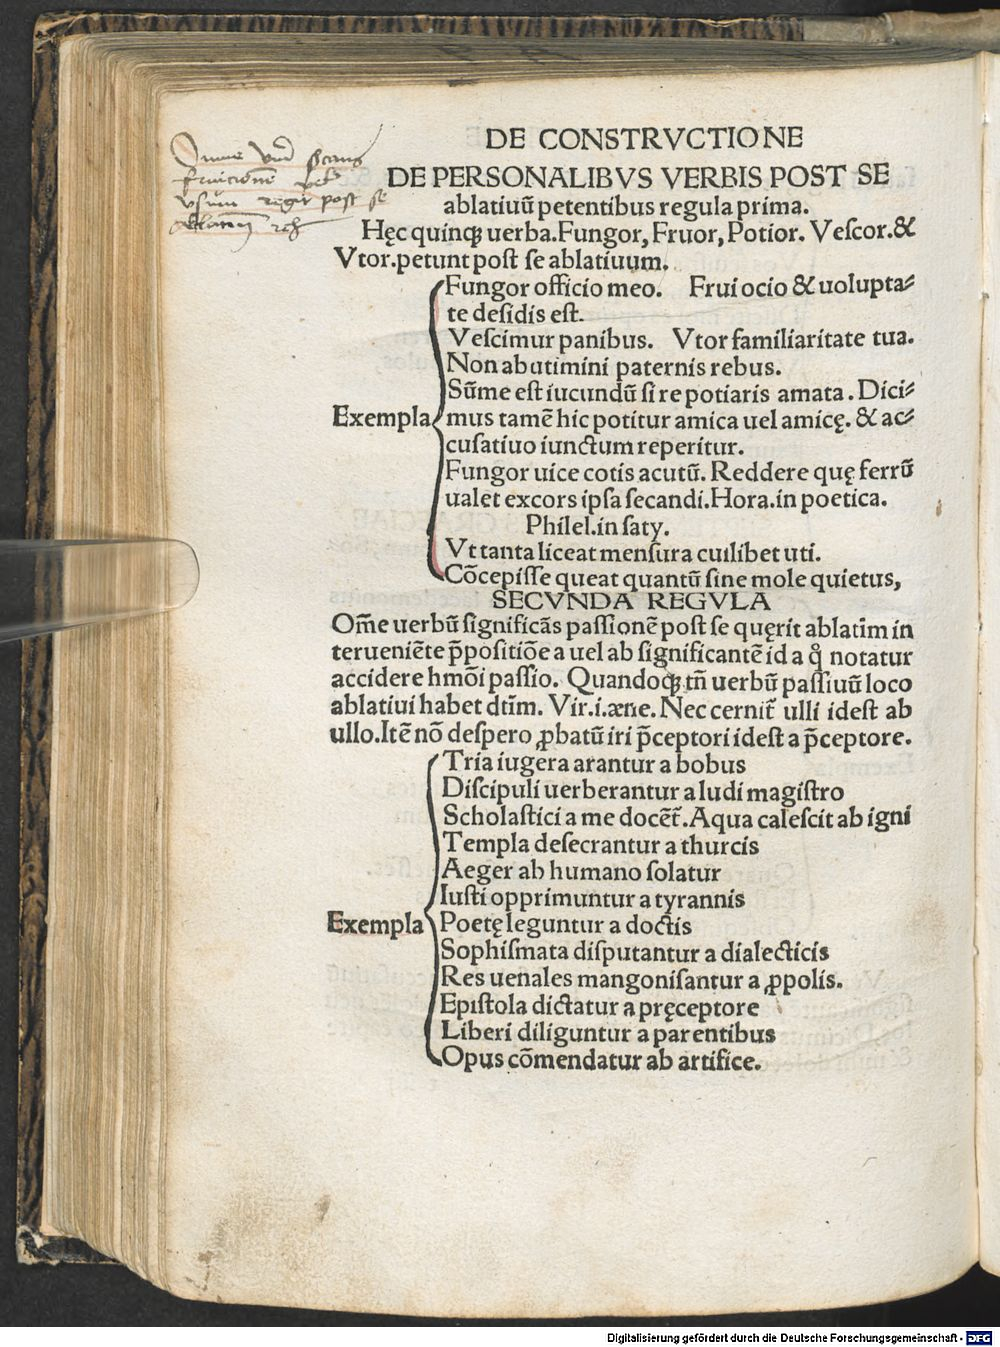 DE CONSTRVCTIONE
DE PERSONALIBVS VERBIS POST SE
ablatiuũ petentibus regula prima.
Hęc quinqꝫ uerba. Fungor, Fruor, Potior. Veſcor. &
Vtor. petunt poſt ſe ablatiuum.
Fungor officio meo. Frui ocio & uolupta⸗
te deſidis eſt.
Veſcimur panibus. Vtor familiaritate tua.
Non abutimini paternis rebus.
Sũme eſt iucundũ ſi re potiaris amata. Dici⸗
Exempla mus tamẽ hic potitur amica uel amicę. & ac⸗
cuſatiuo iunctum reperitur.
Fungor uice cotis acutũ. Reddere quę ferrũ
ualet excors ipſa ſecandi. Hora. in poetica.
Philel. in ſaty.
Vt tanta liceat menſura cuilibet uti.
Cõcepiſſe queat quantũ ſine mole quietus,
SECVNDA REGVLA
Om̃e uerbũ ſignificãs paſſionẽ poſt ſe quęrit ablatim̃ in
terueniẽte p̃poſitiõe a uel ab ſignificantẽ id a q̊ notatur
accidere hmõi paſſio. Quandoqꝫ tñ uerbũ paſſiuũ loco
ablatiui habet dtim̃. Vir. i. æne. Nec cernit̃ ulli ideſt ab
ullo. Itẽ nõ deſpero ꝓbatũ iri p̃ceptori ideſt a p̃ceptore.
Tria iugera arantur a bobus
Diſcipuli uerberantur a ludi magiſtro
Scholaſtici a me docẽt̃. Aqua caleſcit ab igni
Templa deſecrantur a thurcis
Aeger ab humano ſolatur
Iuſti opprimuntur a tyrannis
Exempla Poetę leguntur a doctis
Sophiſmata diſputantur a dialecticis
Res uenales mangoniſantur a ꝓpolis.
Epiſtola dictatur a pręceptore
Liberi diliguntur a parentibus
Opus cõmendatur ab artifice.
vsum regit post se
Digitalisierung gefördert durch die Deutsche Forschungsgemeinschaft - DFG